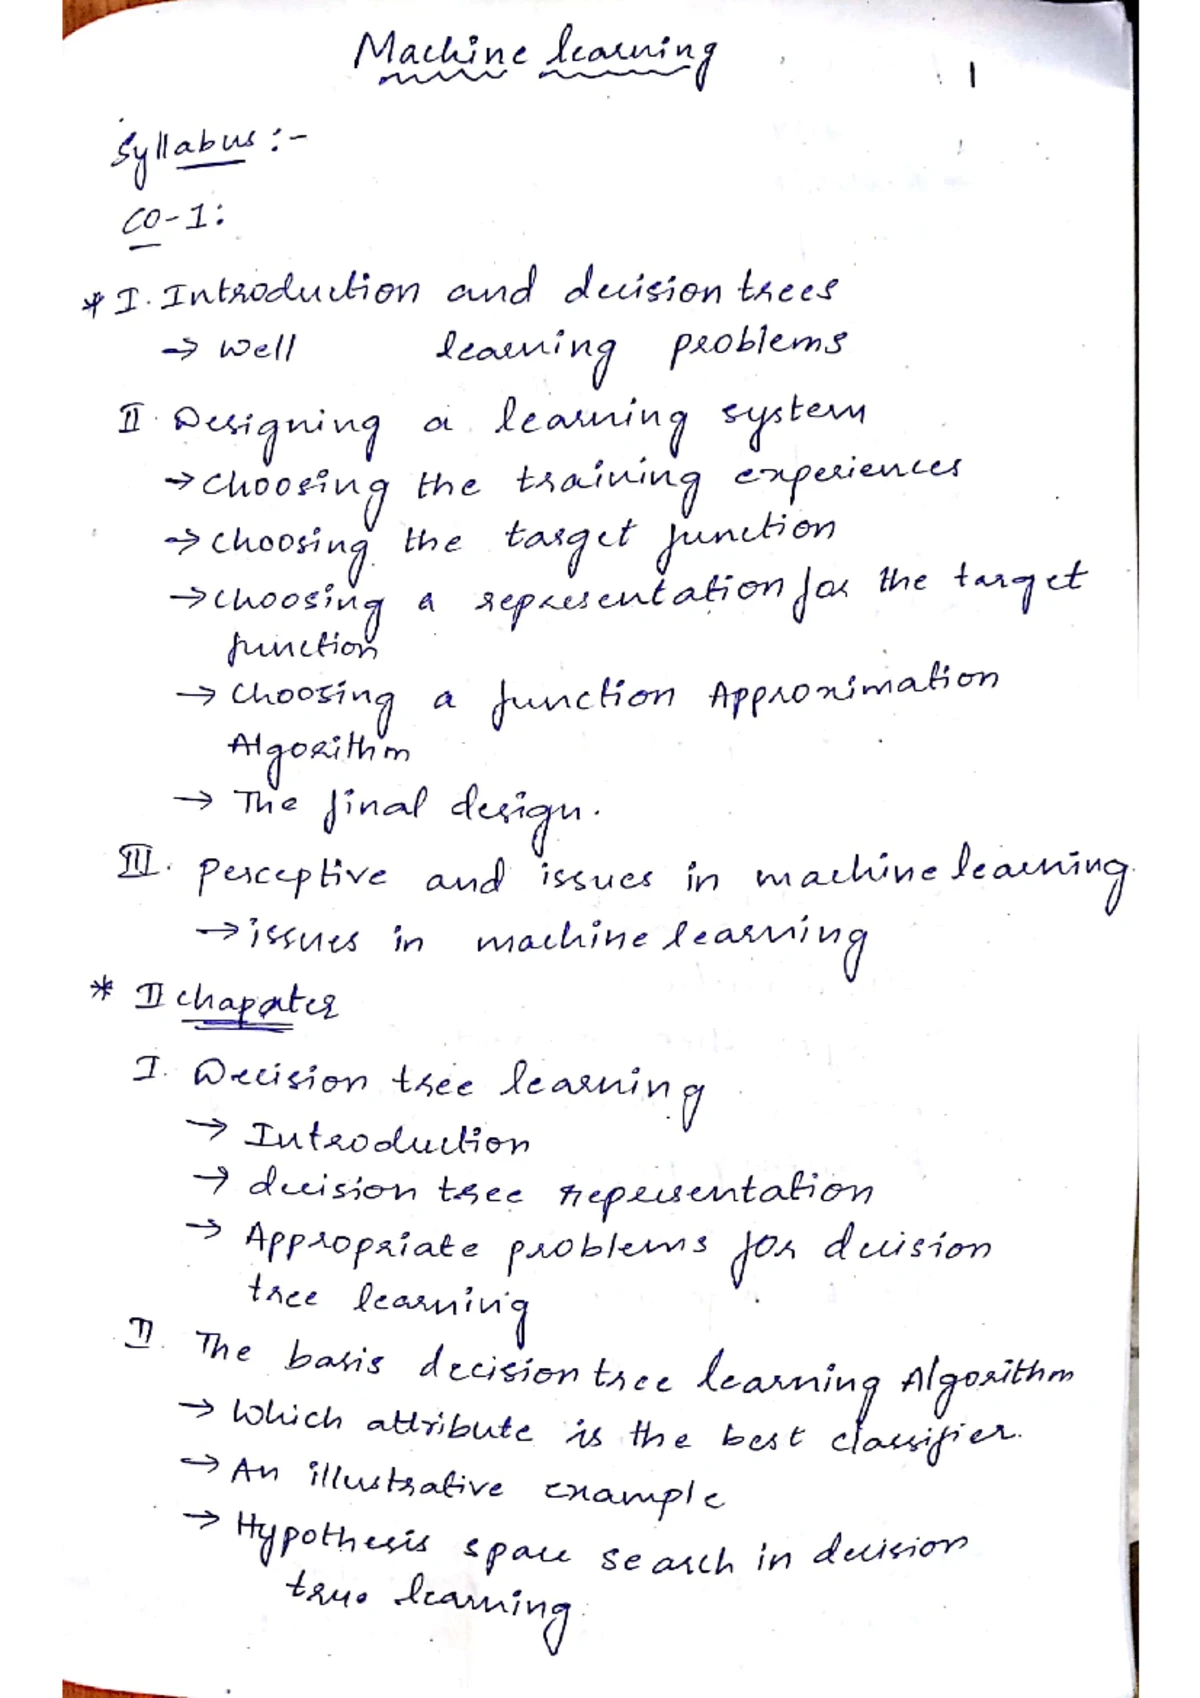 Machine learning
1
Syllabus :-
CO-1:
* I. Introduction and decision trees
→ Well learning problems
II. Designing a learning system
→ choosing the training experiences
→ choosing the target function
→ choosing a representation for the target
function
→ choosing a function Approximation
Algorithm
→ The final design.
III. perceptive and issues in machine learning.
→ issues in machine learning
* II chapater
I. Decision tree learning
→ Introduction
→ decision tree repersentation
→ Appropriate problems for decision
tree learning
II. The basis decision tree learning Algorithm
→ Which attribute is the best classifier.
→ An illustrative example
→ Hypothesis space search in decision
tree learning.